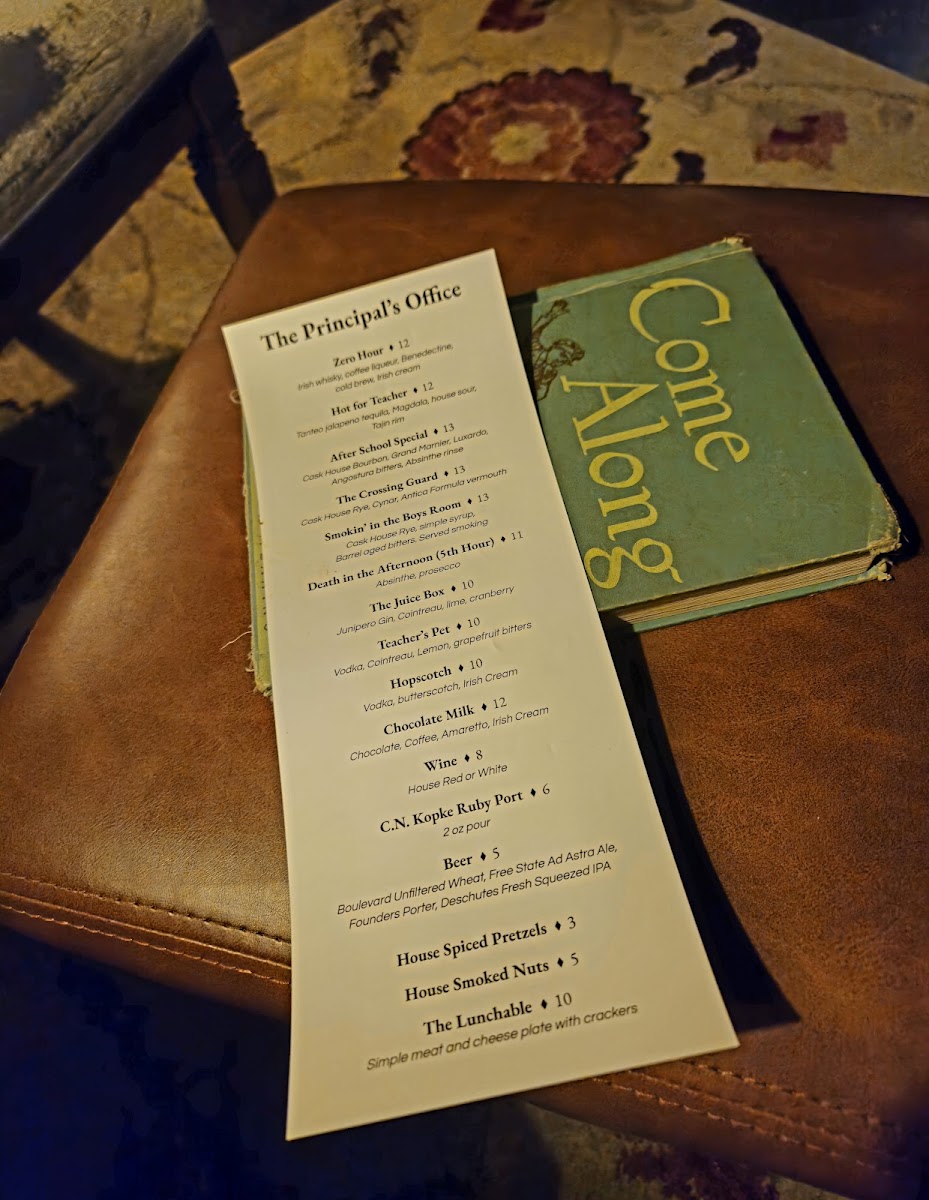 The Principal's Office
Zero Hour ♦ 12
Irish whisky, coffee liqueur, Benedectine,
cold brew, Irish cream
Hot for Teacher ♦ 12
Tanteo jalapeno tequila, Magdala, house sour,
Tajin rim
After School Special ♦ 13
Cask House Bourbon, Grand Marnier, Luxardo,
Angostura bitters, Absinthe rinse
The Crossing Guard ♦ 13
Cask House Rye, Cynar, Antica Formula vermouth
Smokin' in the Boys Room ♦ 13
Cask House Rye, simple syrup,
Barrel aged bitters. Served smoking
Death in the Afternoon (5th Hour) ♦ 11
Absinthe, prosecco
The Juice Box ♦ 10
Junipero Gin, Cointreau, lime, cranberry
Teacher's Pet ♦ 10
Vodka, Cointreau, Lemon, grapefruit bitters
Hopscotch ♦ 10
Vodka, butterscotch, Irish Cream
Chocolate Milk ♦ 12
Chocolate, Coffee, Amaretto, Irish Cream
Wine ♦ 8
House Red or White
C.N. Kopke Ruby Port ♦ 6
2 oz pour
Beer ♦ 5
Boulevard Unfiltered Wheat, Free State Ad Astra Ale,
Founders Porter, Deschutes Fresh Squeezed IPA
House Spiced Pretzels ♦ 3
House Smoked Nuts ♦ 5
The Lunchable ♦ 10
Simple meat and cheese plate with crackers
Come
Along